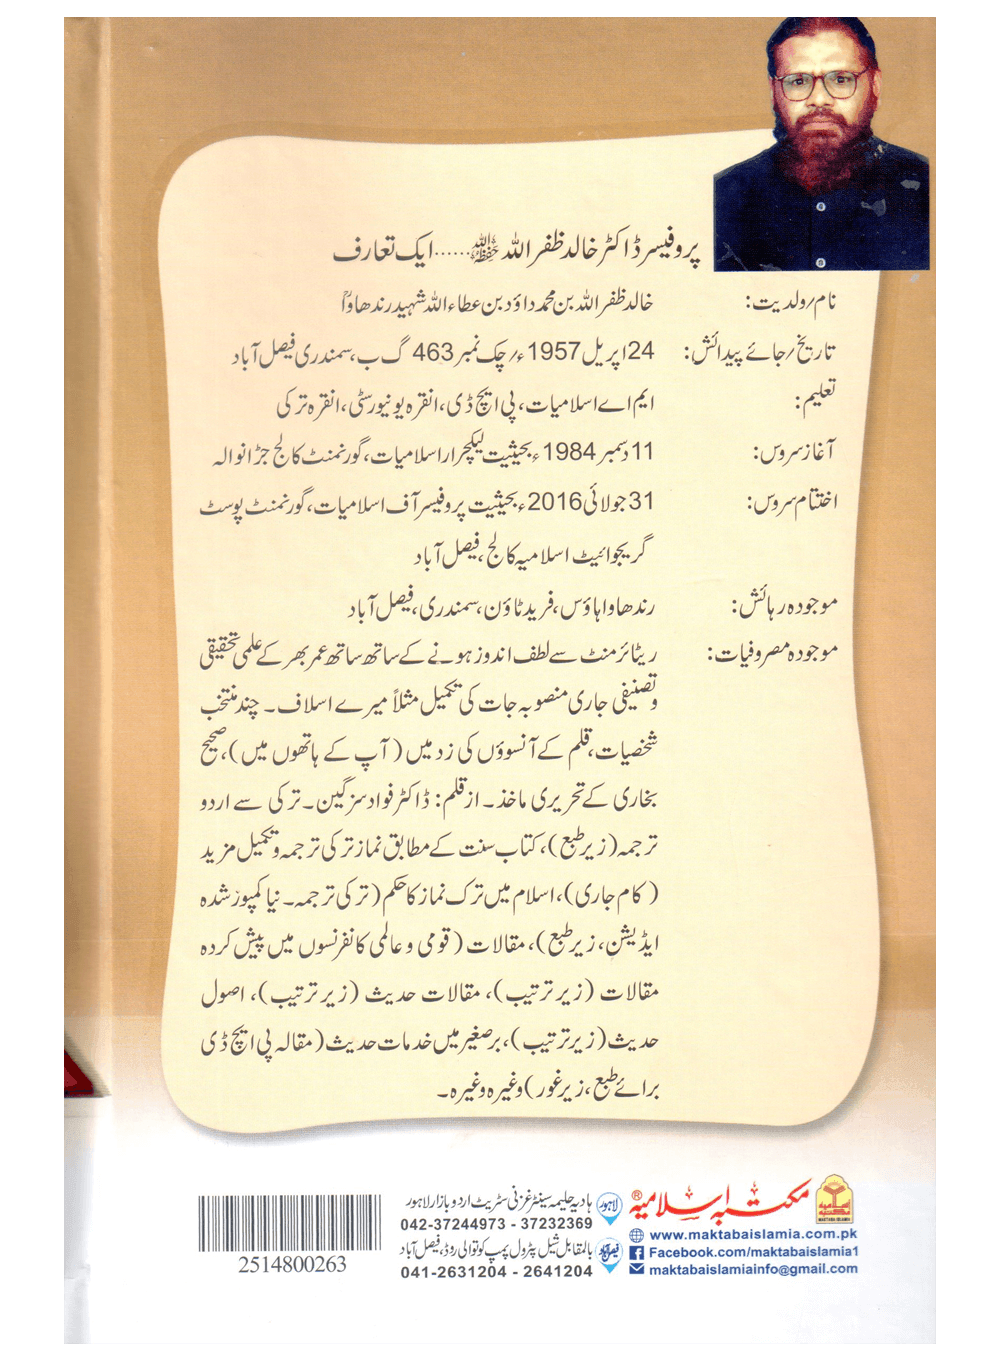 پروفیسر ڈاکٹر خالد ظفر اللہ حفظہ اللہ ...... ایک تعارف
نام/ولدیت: خالد ظفر اللہ بن محمد داؤد بن عطاء اللہ شہید رندھاوا
تاریخ/جائے پیدائش: 24 اپریل 1957ء/چک نمبر 463 گ ب، سمندری فیصل آباد
تعلیم: ایم اے اسلامیات، پی ایچ ڈی، انقرہ یونیورسٹی، انقرہ ترکی
آغاز سروس: 11 دسمبر 1984ء بحیثیت لیکچرار اسلامیات، گورنمنٹ کالج جڑانوالہ
اختتام سروس: 31 جولائی 2016ء بحیثیت پروفیسر آف اسلامیات، گورنمنٹ پوسٹ
گریجوائیٹ اسلامیہ کالج، فیصل آباد
موجودہ رہائش: رندھاوا ہاؤس، فرید ٹاؤن، سمندری، فیصل آباد
موجودہ مصروفیات: ریٹائرمنٹ سے لطف اندوز ہونے کے ساتھ ساتھ عمر بھر کے علمی تحقیقی
و تصنیفی جاری منصوبہ جات کی تکمیل مثلاً میرے اسلاف۔ چند منتخب
شخصیات، قلم کے آنسوؤں کی زد میں (آپ کے ہاتھوں میں)، صحیح
بخاری کے تحریری ماخذ۔ از قلم: ڈاکٹر فواد سزگین۔ ترکی سے اردو
ترجمہ (زیر طبع)، کتاب سنت کے مطابق نماز ترکی ترجمہ و تکمیل مزید
(کام جاری)، اسلام میں ترک نماز کا حکم (ترکی ترجمہ۔ نیا کمپوز شدہ
ایڈیشن، زیر طبع)، مقالات (قومی و عالمی کانفرنسوں میں پیش کردہ
مقالات (زیر ترتیب)، مقالات حدیث (زیر ترتیب)، اصول
حدیث (زیر ترتیب)، برصغیر میں خدمات حدیث (مقالہ پی ایچ ڈی
برائے طبع، زیر غور) وغیرہ وغیرہ۔
مکتبہ اسلامیہ®
MAKTABA ISLAMIA
www.maktabaislamia.com.pk
Facebook.com/maktabaislamia1
maktabaislamiainfo@gmail.com
لاہور ہادیہ حلیمہ سینٹر غزنی سٹریٹ اردو بازار لاہور
042-37244973 - 37232369
فیصل آباد بالمقابل شیل پٹرول پمپ کوتوالی روڈ، فیصل آباد
041-2631204 - 2641204
2514800263